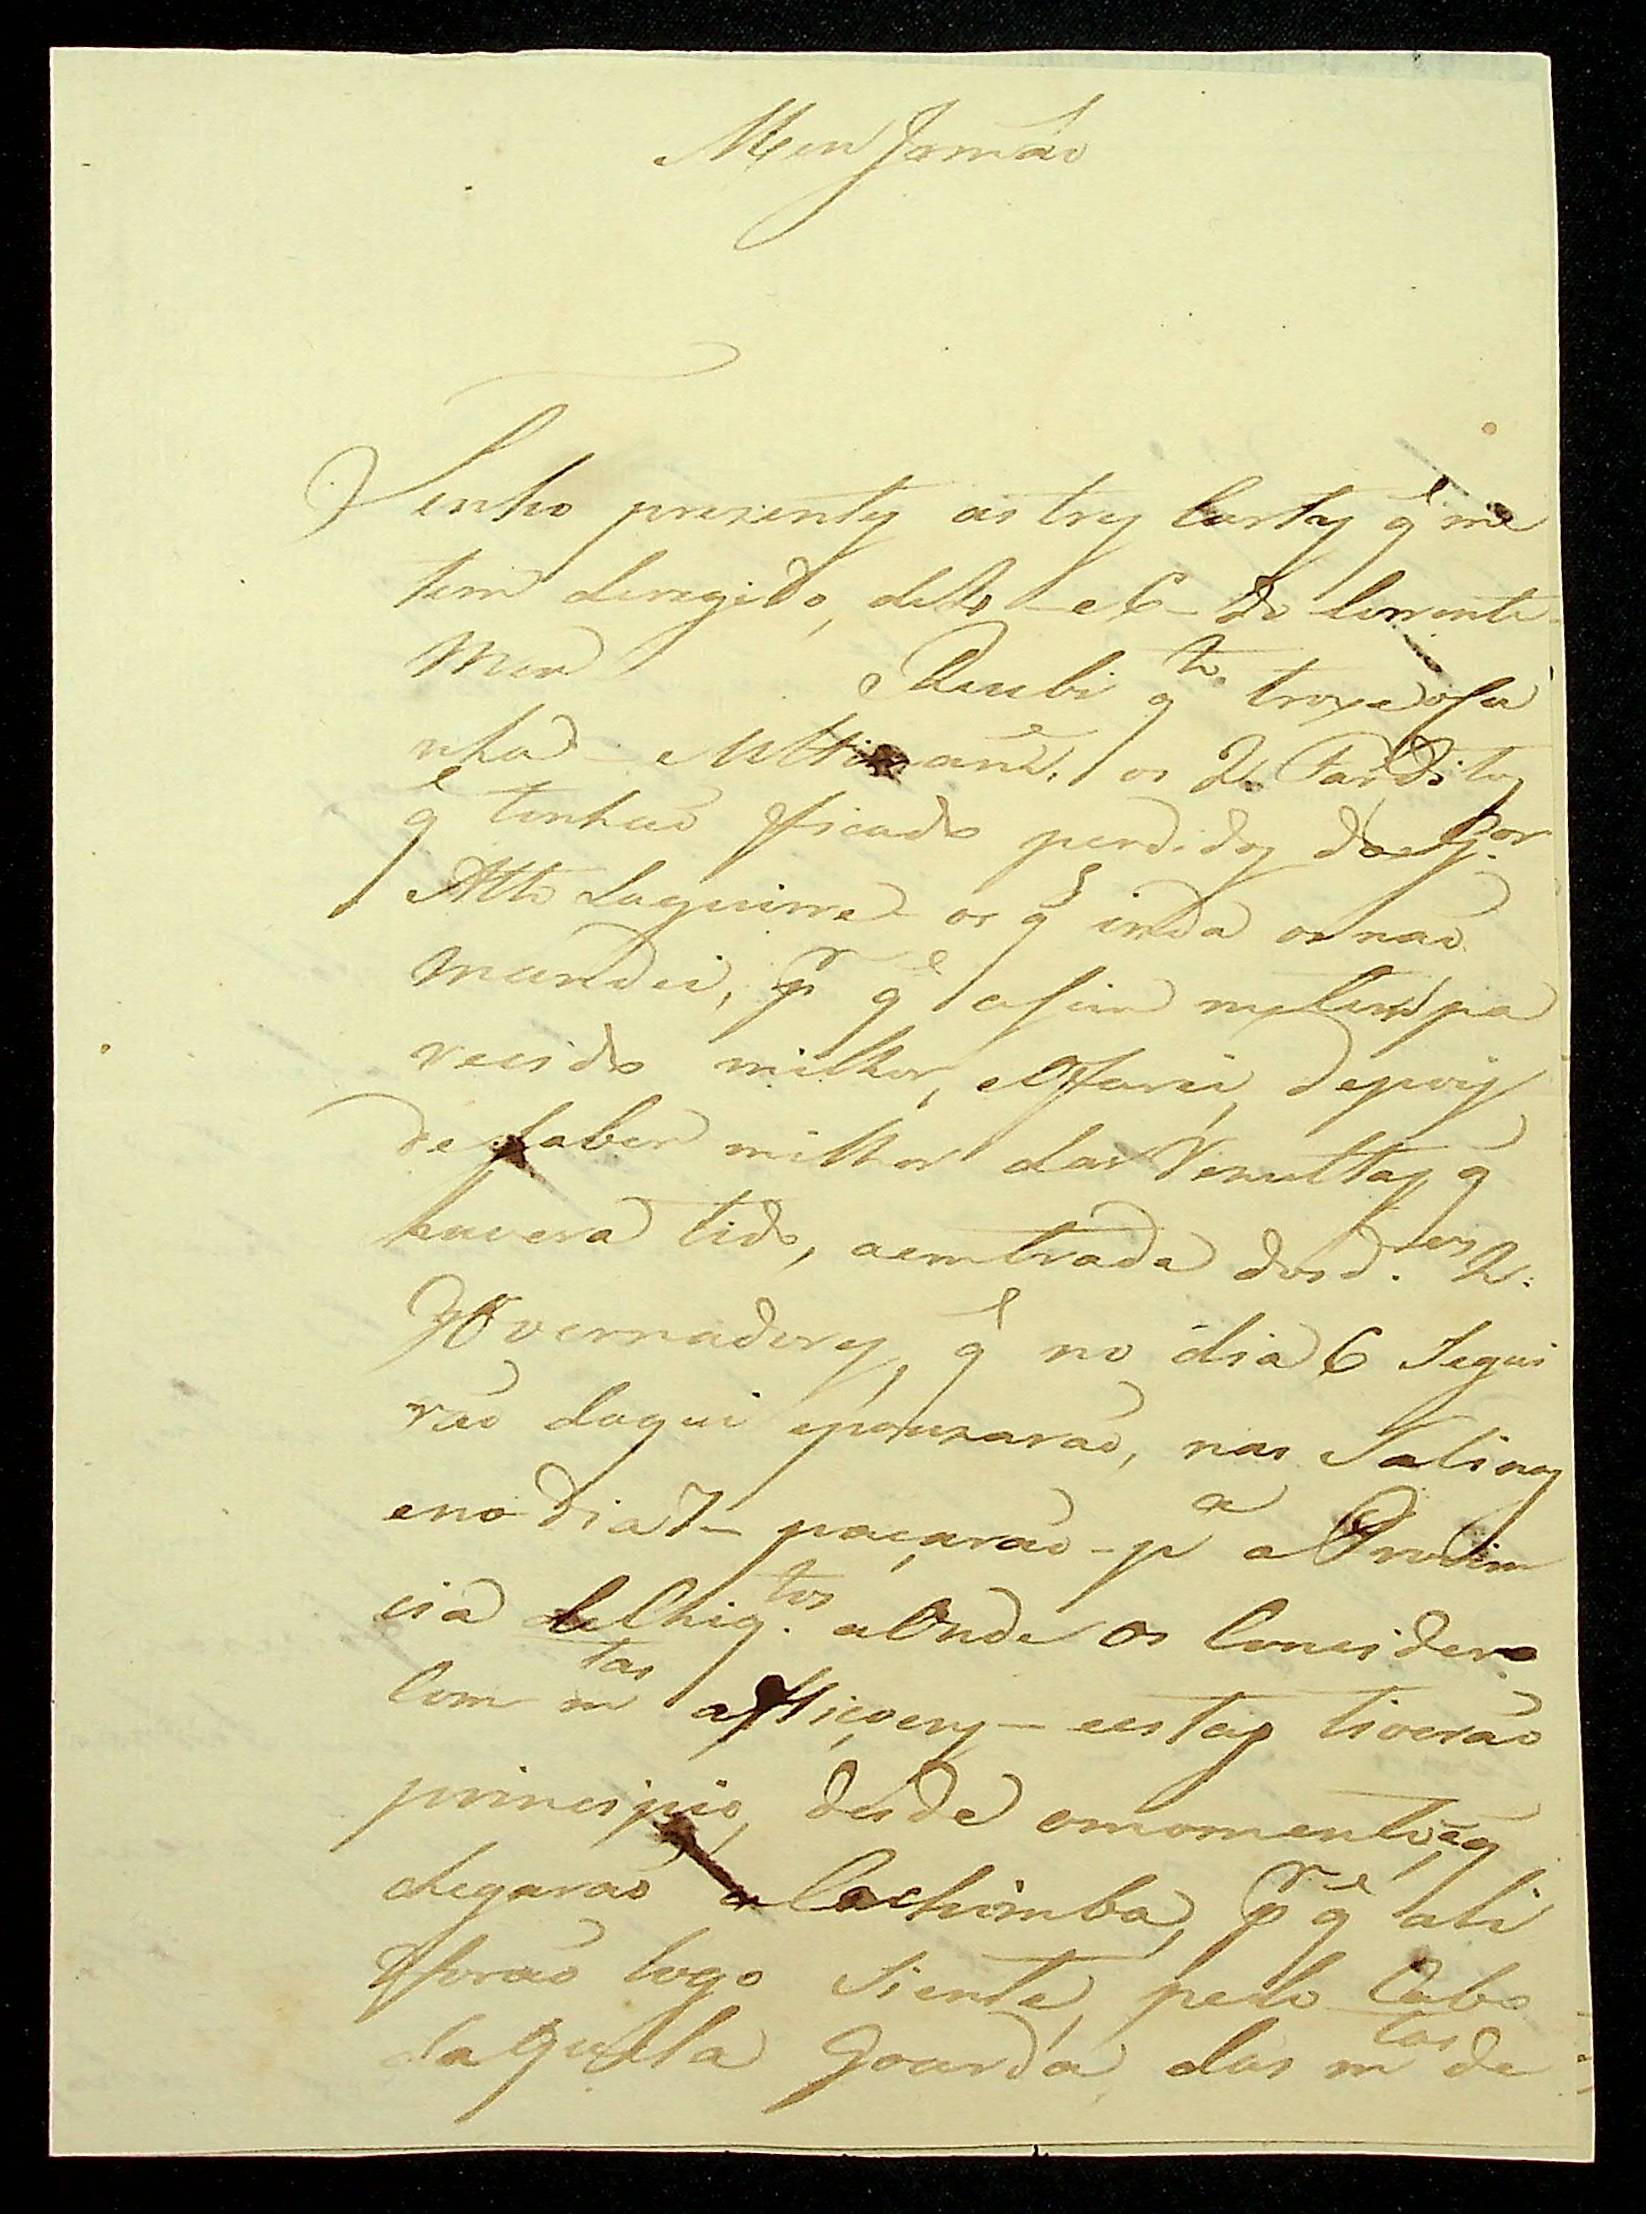 Meu Irmaõ
Tenho prezentes as tres Cartas q̃ me
tem deregido, de - e 6 - do Corrente
Mez Recebi q.to troxe o
nhad os 2. Farditos
q̃ tinhaõ ficado perdidos do G.or
Alto Laguirre os q̃ inda os naõ
mandei, p.r q̃ asim me tem pa
recido milhor, e O farei, depois
de saber milhor das Venultas q̃
houvera tido, a emtrada dos d.os 2.
Governadores, q̃ no dia 6 Segui
raõ daqui e pouzaraõ, nas Salinas
e no dia 7 - paçaraõ - p.a a Provin
cia de Chiq.tos a Onde os Concidero
Com m.tas aflicçoens - e estas tiveraõ
principio, desde o momento, eq̃
chegaraõ a Cachimba, p.r q̃ ali
foraõ logo Siente, pelo Cabo
daquela Goarda, das m.tas de